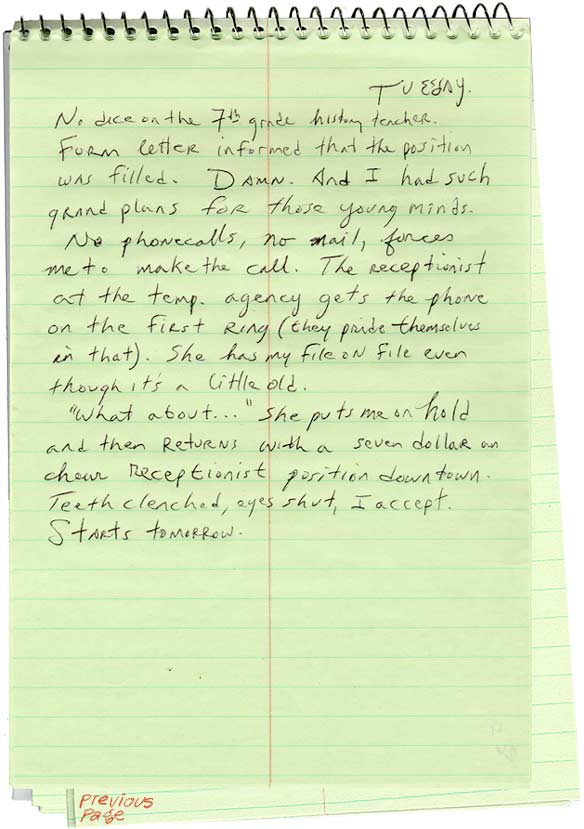 TUESDAY.
No dice on the 7th grade history teacher.
Form letter informed that the position
was filled. DAMN. And I had such
grand plans for those young minds.
No phonecalls, no mail, forces
me to make the call. The receptionist
at the temp. agency gets the phone
on the first ring (they pride themselves
in that). She has my file on file even
though it's a little old.
"What about..." She puts me on hold
and then returns with a seven dollar an
hour receptionist position downtown.
Teeth clenched, eyes shut, I accept.
Starts tomorrow.
Previous
Page